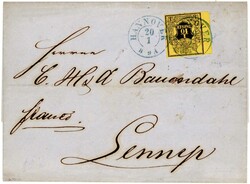 HANNOVER
20
1
Herren
C. H & A Bauendahl
franco
Lennep